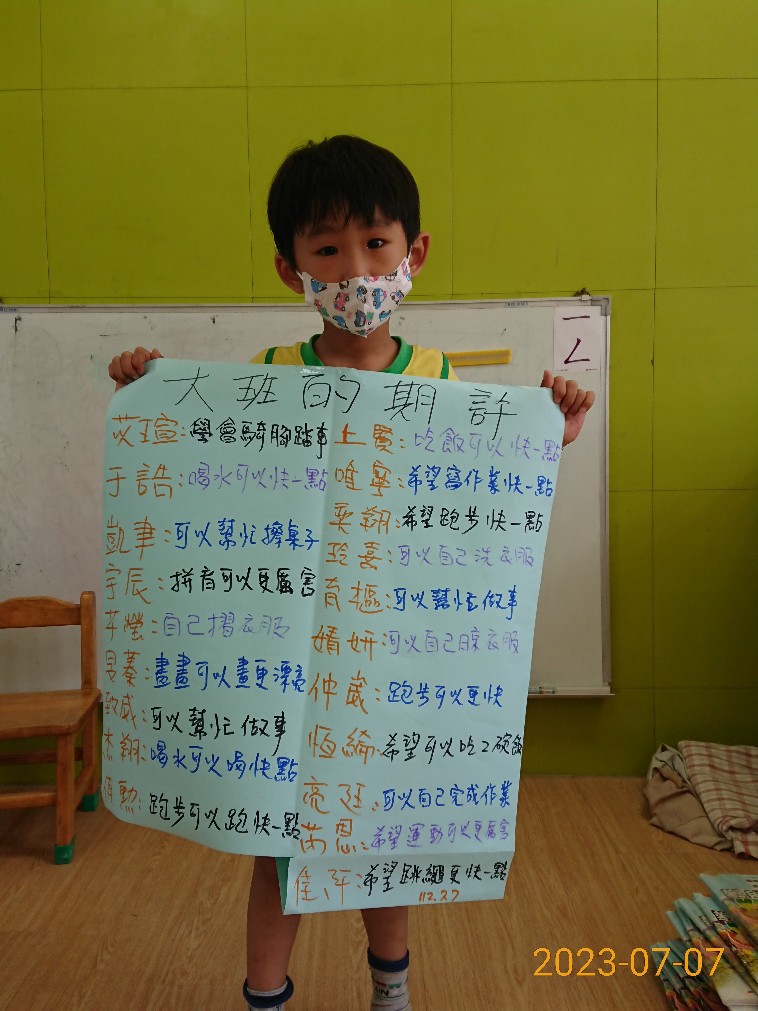 大班的期許
苡瑄:學會騎腳踏車
于誥:喝水可以快一點
凱聿:可以幫忙擦桌子
宇辰:拼音可以更厲害
苹螢:自己摺衣服
昱蓁:畫畫可以畫更漂亮
致威:可以幫忙做事
杰翔:喝水可以喝快點
勲:跑步可以跑快一點
上賢:吃飯可以快一點
唯寧:希望寫作業快一點
奕翔:希望跑步快一點
玲熹:可以自己洗衣服
育樞:可以幫忙做事
婧妍:可以自己晾衣服
仲崴:跑步可以更快
恆綺:希望可以吃2碗飯
亮廷:可以自己完成作業
芮恩:希望運動可以更厲害
希望跳繩更快一點
112.7.7
一
ㄥ
2023-07-07